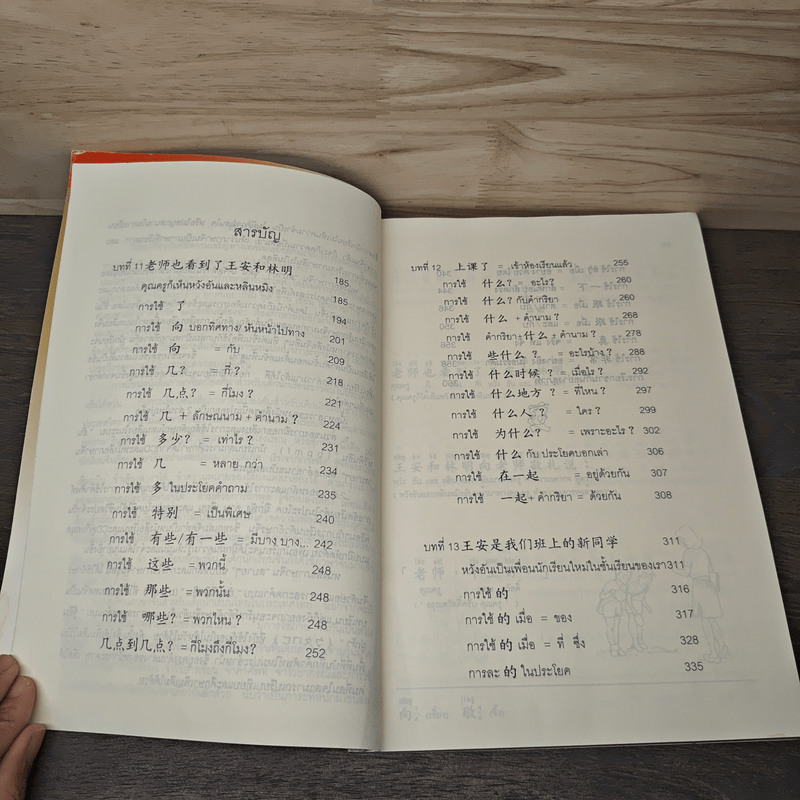 สารบัญ
บทที่ 11 老师也看到了王安和林明 185
คุณครูก็เห็นหวังอันและหลินหมิง 185
การใช้ 了 194
การใช้ 向 บอกทิศทาง/หันหน้าไปทาง 201
การใช้ 向 = กับ 209
การใช้ 几? = กี่? 218
การใช้ 几点? = กี่โมง? 221
การใช้ 几 + ลักษณนาม + คำนาม? 224
การใช้ 多少? = เท่าไร? 231
การใช้ 几 = หลาย กว่า 234
การใช้ 多 ในประโยคคำถาม 235
การใช้ 特别 = เป็นพิเศษ 240
การใช้ 有些/有一些 = มีบาง บาง... 242
การใช้ 这些 = พวกนี้ 248
การใช้ 那些 = พวกนั้น 248
การใช้ 哪些? = พวกไหน? 248
几点到几点? = กี่โมงถึงกี่โมง? 252
บทที่ 12 上课了 = เข้าห้องเรียนแล้ว 255
การใช้ 什么? = อะไร? 260
การใช้ 什么? กับคำกริยา 260
การใช้ 什么 + คำนาม? 268
การใช้ คำกริยา+什么+คำนาม? 278
การใช้ 些什么? = อะไรบ้าง? 288
การใช้ 什么时候? = เมื่อไร? 292
การใช้ 什么地方? = ที่ไหน? 297
การใช้ 什么人? = ใคร? 299
การใช้ 为什么? = เพราะอะไร? 302
การใช้ 什么 กับ ประโยคบอกเล่า 306
การใช้ 在一起 = อยู่ด้วยกัน 307
การใช้ 一起+คำกริยา = ด้วยกัน 308
บทที่ 13 王安是我们班上的新同学 311
หวังอันเป็นเพื่อนนักเรียนใหม่ในชั้นเรียนของเรา 311
การใช้ 的 316
การใช้ 的 เมื่อ = ของ 317
การใช้ 的 เมื่อ = ที่ ซึ่ง 328
การละ 的 ในประโยค 335